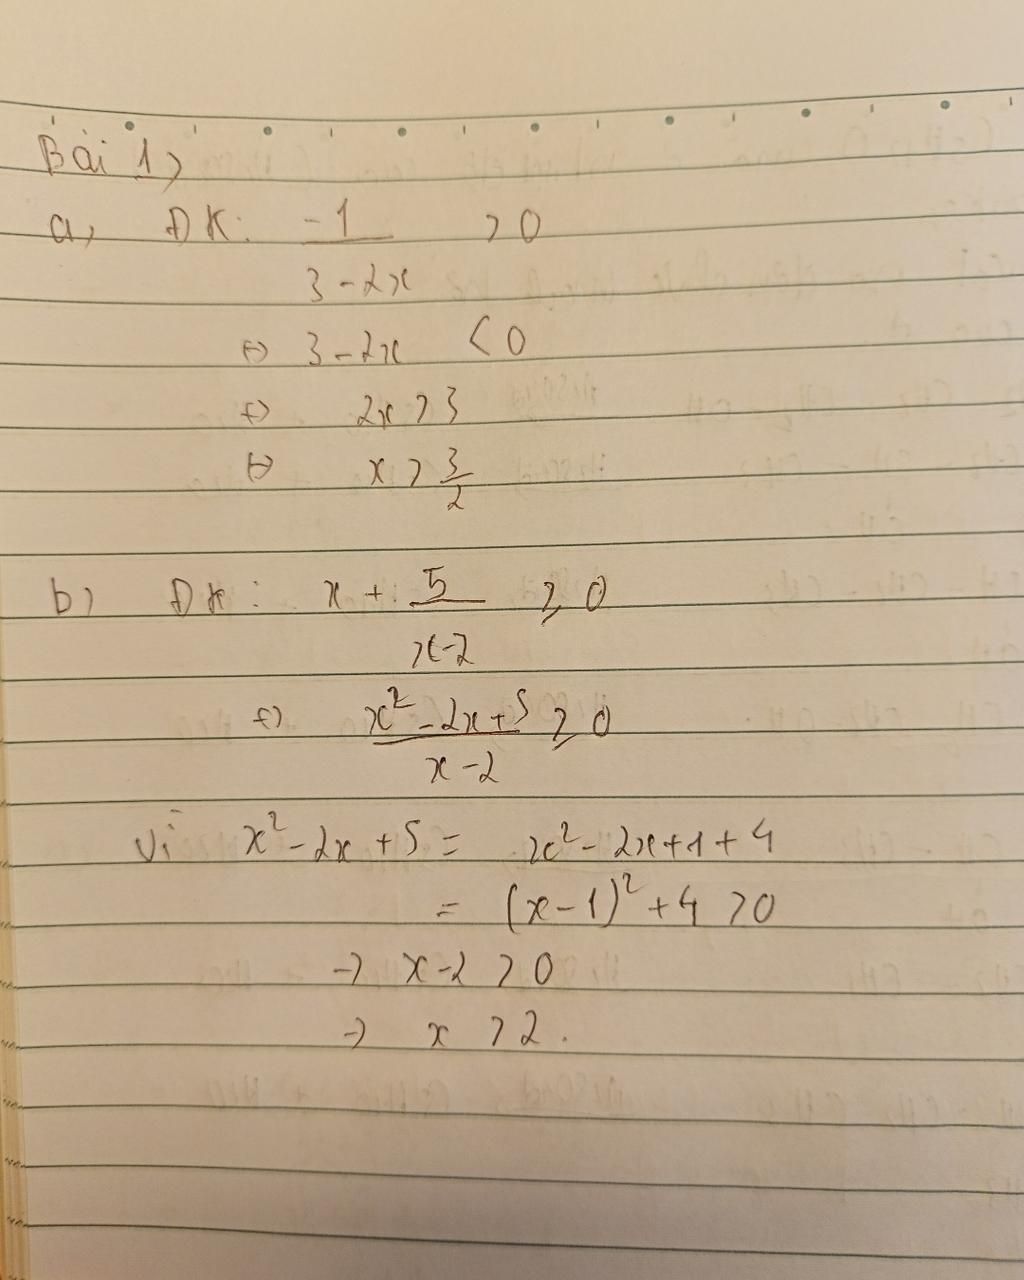 Bài 1,
a, ĐK: -1 > 0
3 - 2x
⇔ 3 - 2x < 0
⇔ 2x > 3
⇔ x > 3/2
b, ĐK: x + 5 ≥ 0
x-2
⇔ x² - 2x + 5 ≥ 0
x - 2
Vì x² - 2x + 5 = x² - 2x + 1 + 4
= (x - 1)² + 4 > 0
→ x - 2 > 0
→ x > 2.